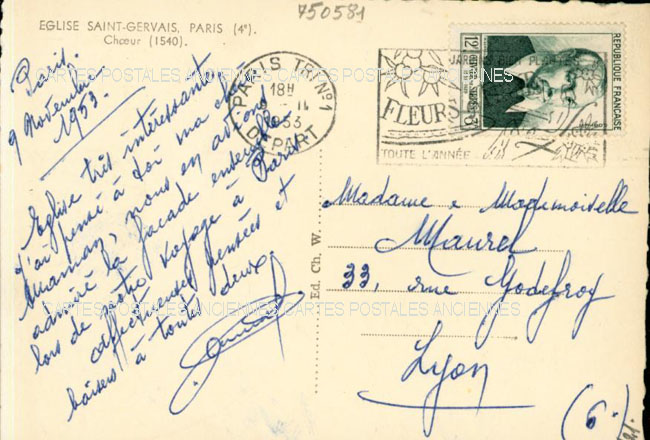 750581
EGLISE SAINT-GERVAIS, PARIS (4e).
Chœur (1540).
Paris.
9 Novembre
1953.
Eglise très intéressante
J'ai pensé à toi ma chère
Maman, nous en avions
admiré la façade ensemble
lors de notre voyage à Paris
affectueuses pensées et
baisers à toutes deux
Ed. Ch. W.
PARIS TRI No 1
18H
9 - 11
1953
DEPART
JARDINS PLANTES
FLEURS
TOUTE L'ANNÉE
12F
REPUBLIQUE FRANÇAISE
Madame & Mademoiselle
Maurel
33, rue Godefroy
Lyon
(6e)
CARTES POSTALES ANCIENNES CARTES POSTALES ANCIENNES
CARTES POSTALES ANCIENNES CARTES POSTALES ANCIENNES